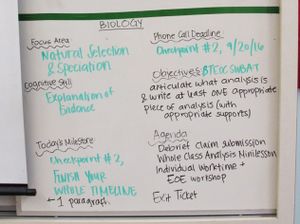 BIOLOGY
Focus Area
Natural Selection
& Speciation
Cognitive Skill
Explanation of
Evidence
Today's Milestone
Checkpoint #2,
FINISH YOUR
WHOLE TIMELINE
+ 1 paragraph
Phone Call Deadline
Checkpoint #2, 9/20/16
Objectives: BTEOC SWBAT
articulate what analysis is
& write at least ONE appropriate
piece of analysis (with
appropriate supports)
Agenda
Debrief Claim Submission
Whole Class Analysis Minilesson
Individual Worktime +
EOE Workshop
Exit Ticket